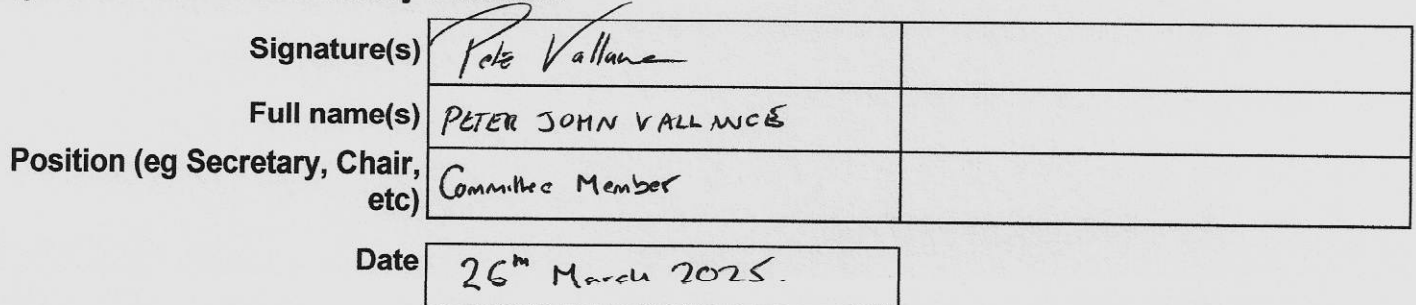 Signature(s) Pete Vallance
Full name(s) PETER JOHN VALLANCE
Position (eg Secretary, Chair,
etc) Committee Member
Date 26th March 2025.